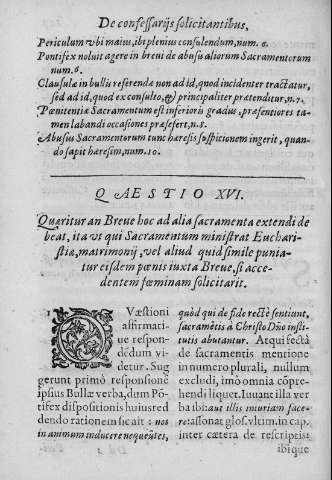 De confessarijs solicitantibus.
Periculum vbi maius, ibi plenius consulendum, num. 6.
Pontifex noluit agere in breui de abusu aliorum Sacramentorum
num. 6.
Clausulæ in bullis referendæ non ad id, quod incidenter tractatur,
sed ad id, quod ex consulto, & principaliter prætenditur, n. 7.
Pœnitentiæ Sacramentum est inferioris gradus, præsentiores ta-
men labandi occasiones præsefert, n. 8.
Abusus Sacramentorum tunc hæresis suspicionem ingerit, quan-
do sapit hæresim, num. 10.
QVAESTIO XVI.
Quæritur an Breue hoc ad alia sacramenta extendi de
beat, ita vt qui Sacramentum ministrat Euchari-
stiæ, matrimonij, vel aliud quid simile punia-
tur eisdem pœnis iuxta Breue, si acce-
dentem fœminam solicitarit.
QVæstioni
affirmati-
ue respon-
dēdum vi-
detur. Sug
gerunt primò responsionē
ipsius Bullæ verba, dum Pō-
tifex dispositionis huiusred
dendo rationem sic ait: nos
in animum inducere nequeūtes,
quòd qui de fide rectè sentiunt,
sacramētis à Christo Dño insti-
tutis abutantur. At qui fectà
de sacramentis mentione
in numero plurali, nullum
excludi, imò omnia cōpre-
hendi liquet. Iuuant illa ver
ba ibi: aut illis iniuriam face-
re: assonat glos. vltim. in cap.
inter cætera de rescriptis
ibique